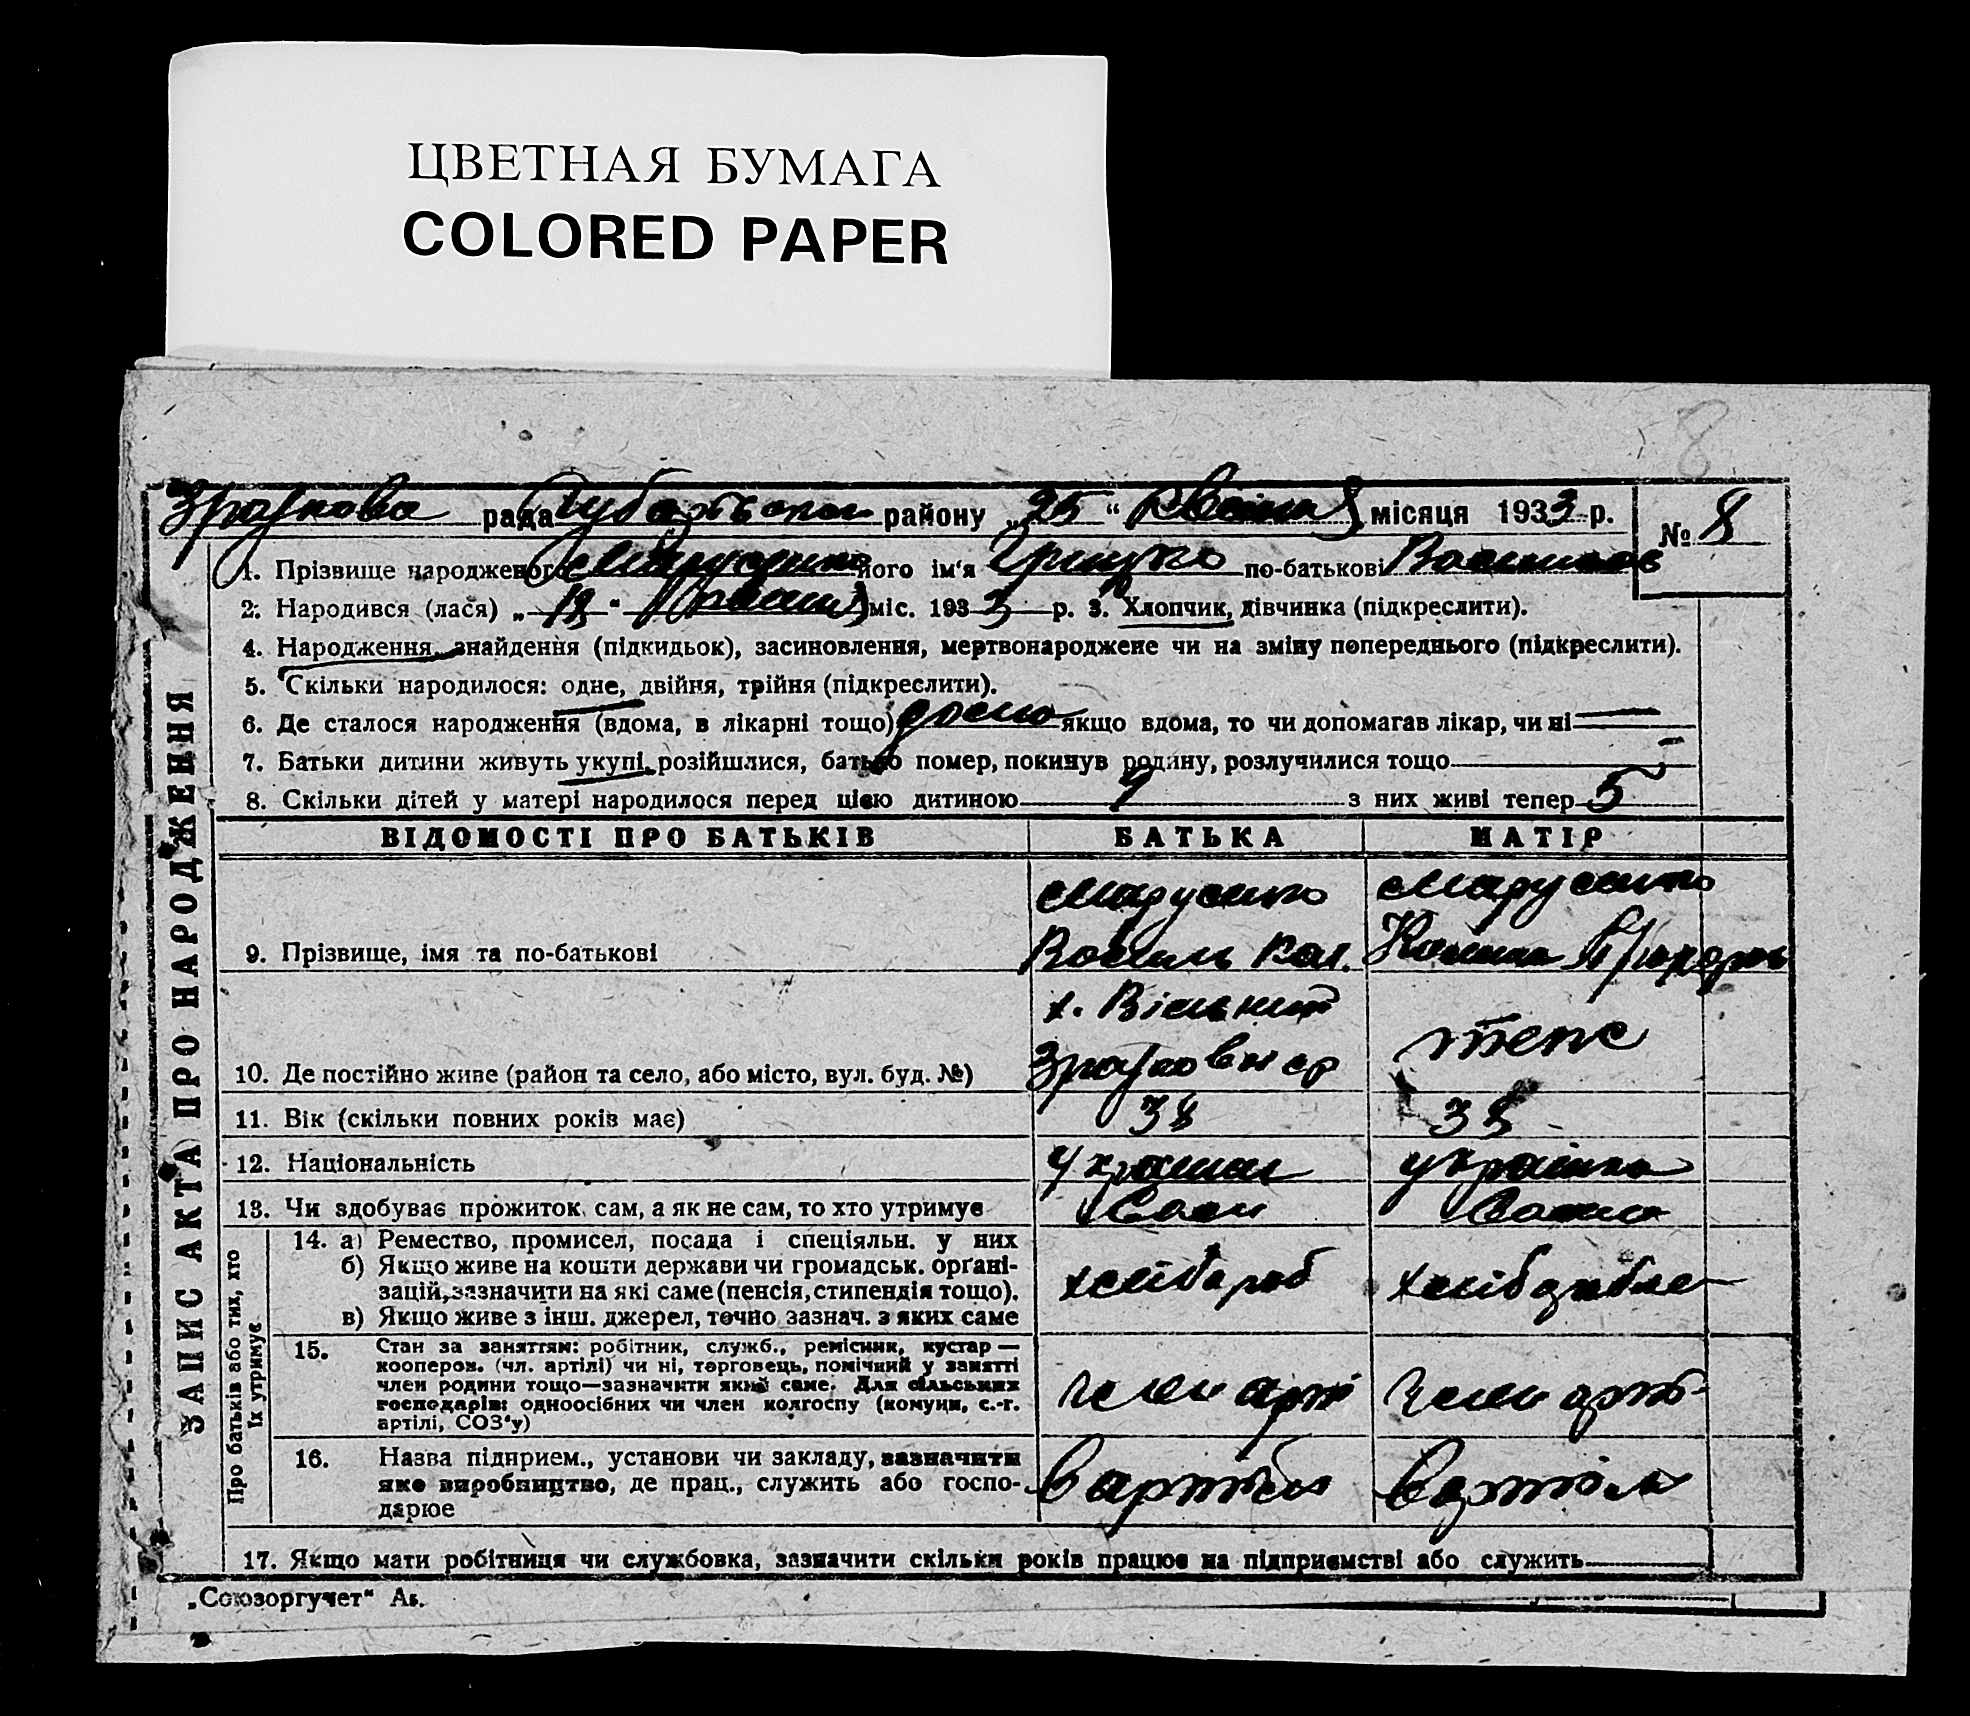 ЦВЕТНАЯ БУМАГА
COLORED PAPER
8
рада району „25“ місяця 1933 р. № 8
1. Прізвище народженого його ім'я Грицько по-батькові
2. Народився (лася) „ “ міс. 1933 р. 3. Хлопчик, дівчинка (підкреслити).
4. Народження, знайдення (підкидьок), засиновлення, мертвонароджене чи на зміну попереднього (підкреслити).
5. Скільки народилося: одне, двійня, трійня (підкреслити).
6. Де сталося народження (вдома, в лікарні тощо) дома якщо вдома, то чи допомагав лікар, чи ні —
7. Батьки дитини живуть укупі, розійшлися, батько помер, покинув родину, розлучилися тощо —
8. Скільки дітей у матері народилося перед цією дитиною з них живі тепер 5
ВІДОМОСТІ ПРО БАТЬКІВ БАТЬКА МАТІР
9. Прізвище, імя та по-батькові Василь
10. Де постійно живе (район та село, або місто, вул. буд. №)
11. Вік (скільки повних років має) 38 38
12. Національність українка
13. Чи здобуває прожиток сам, а як не сам, то хто утримує Сам Сама
14. а) Ремество, промисел, посада і спеціяльн. у них хлібороб
б) Якщо живе на кошти держави чи громадськ. орґані-
зацій, зазначити на які саме (пенсія, стипендія тощо).
в) Якщо живе з інш. джерел, точно зазнач. з яких саме
15. Стан за заняттям: робітник, служб., ремісник, кустар —
кооперов. (чл. артілі) чи ні, торговець, помічний у занятті
член родини тощо—зазначити який саме. Для сільських
господарів: одноосібних чи член колгоспу (комуни, с.-г.
артілі, СОЗ'у)
член арті член арті-
16. Назва підприєм., установи чи закладу, зазначити
яке виробництво, де прац., служить або госпо-
дарює
в артілі в артіли
17. Якщо мати робітниця чи службовка, зазначити скільки років працює на підприємстві або служить
„Союзоргучет“
ЗАПИС АКТА ПРО НАРОДЖЕННЯ
Про батьків або тих, хто
їх утримує